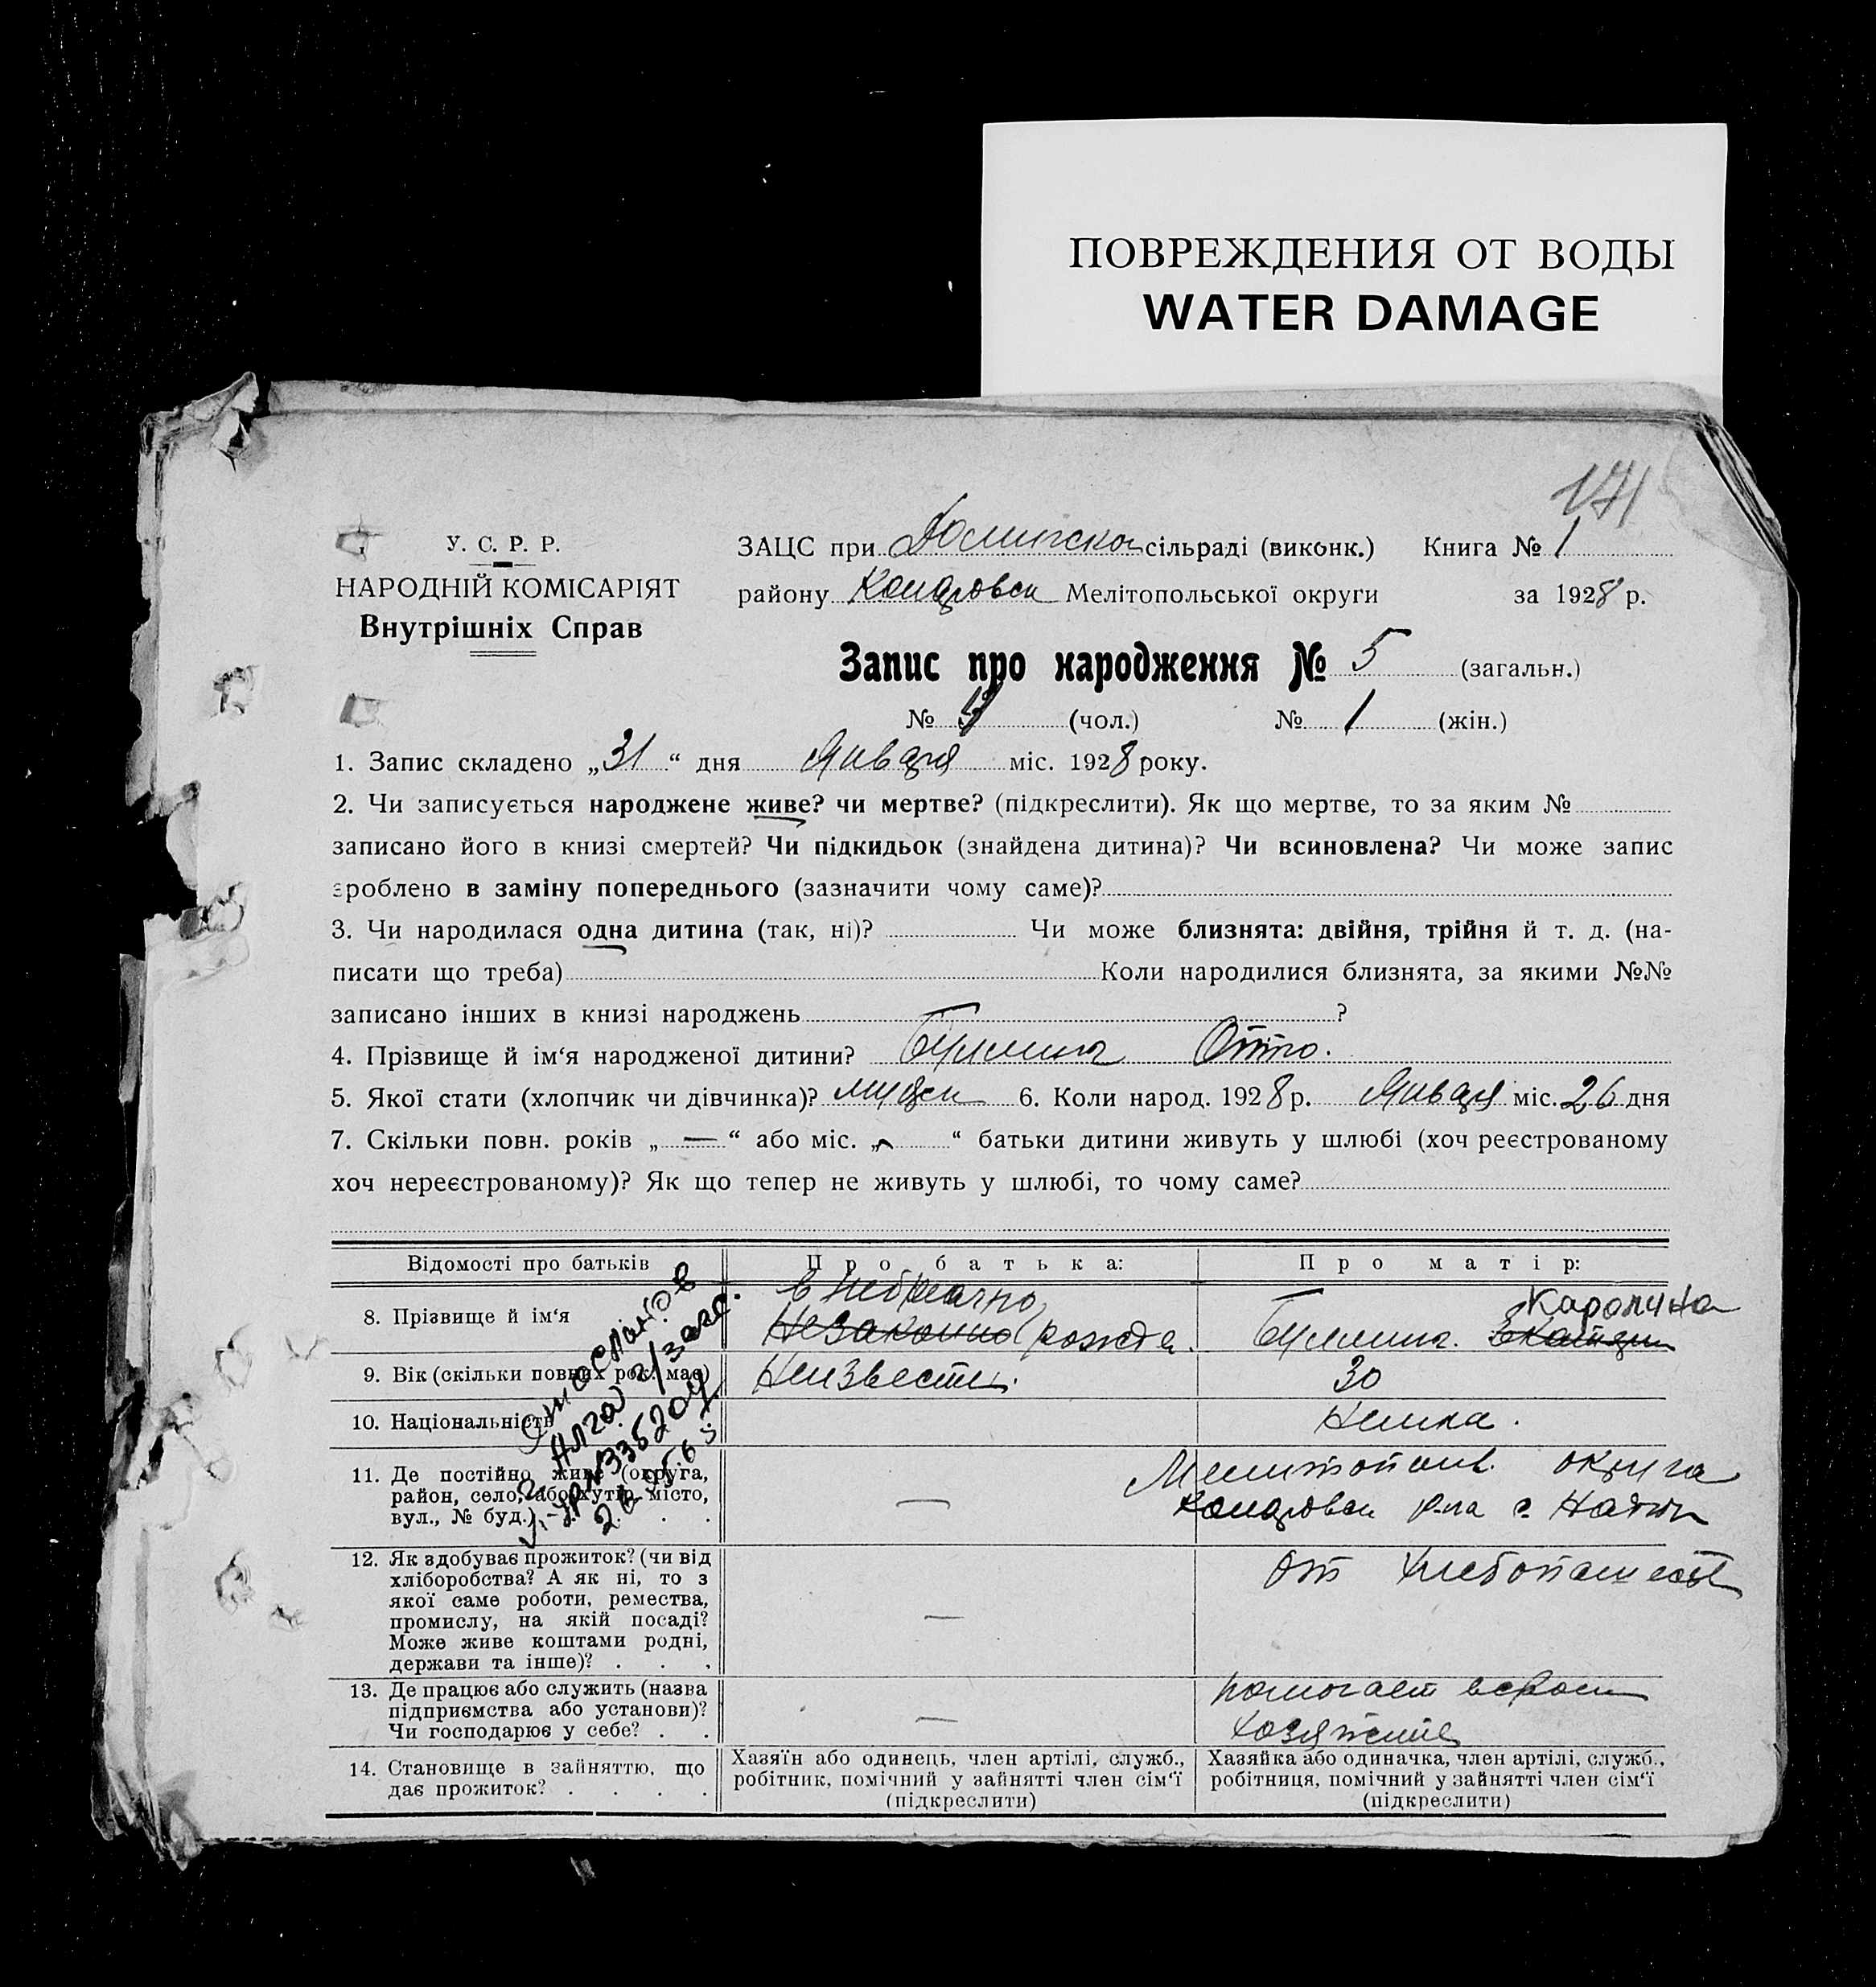 ПОВРЕЖДЕНИЯ ОТ ВОДЫ
WATER DAMAGE
171
У. С. Р. Р.
НАРОДНІЙ КОМІСАРІЯТ
Внутрішніх Справ
ЗАЦС при сільраді (виконк.) Книга № 1
району Мелітопольської округи за 1928 р.
Запис про народження № 5 (загальн.)
№ 4 (чол.) № 1 (жін.)
1. Запис складено „31“ дня Января міс. 1928 року.
2. Чи записується народжене живе? чи мертве? (підкреслити). Як що мертве, то за яким №
записано його в книзі смертей? Чи підкидьок (знайдена дитина)? Чи всиновлена? Чи може запис
зроблено в заміну попереднього (зазначити чому саме)?
3. Чи народилася одна дитина (так, ні)? Чи може близнята: двійня, трійня й т. д. (на-
писати що треба) Коли народилися близнята, за якими №№
записано інших в книзі народжень ?
4. Прізвище й ім‘я народженої дитини? Отто.
5. Якої стати (хлопчик чи дівчинка)? мужск 6. Коли народ. 1928 р. Января міс. 26 дня
7. Скільки повн. років „ — “ або міс. „ “ батьки дитини живуть у шлюбі (хоч реєстрованому
хоч нереєстрованому)? Як що тепер не живуть у шлюбі, то чому саме?
Відомості про батьків Про батька: Про матір:
8. Прізвище й ім‘я внебрачно Незаконно рожде. Каролина
9. Вік (скільки повних рок. має) Неизвестн. 30
10. Національність Немка.
11. Де постійно живе (округа,
район, село, або хутір, місто,
вул., № буд.) . . . — Мелитопол. округа
р-на с.
12. Як здобуває прожиток? (чи від
хліборобства? А як ні, то з
якої саме роботи, ремества,
промислу, на якій посаді?
Може живе коштами родні,
держави та інше)? . . . — От хлебопашества
13. Де працює або служить (назва
підприємства або установи)?
Чи господарює у себе? . . — помогает в
хозяйстве
14. Становище в зайняттю, що
дає прожиток? . . . .
Хазяїн або одинець, член артілі, служб.,
робітник, помічний у зайнятті член сім‘ї
(підкреслити)
Хазяйка або одиначка, член артілі, служб.,
робітниця, помічний у зайнятті член сім‘ї
(підкреслити)